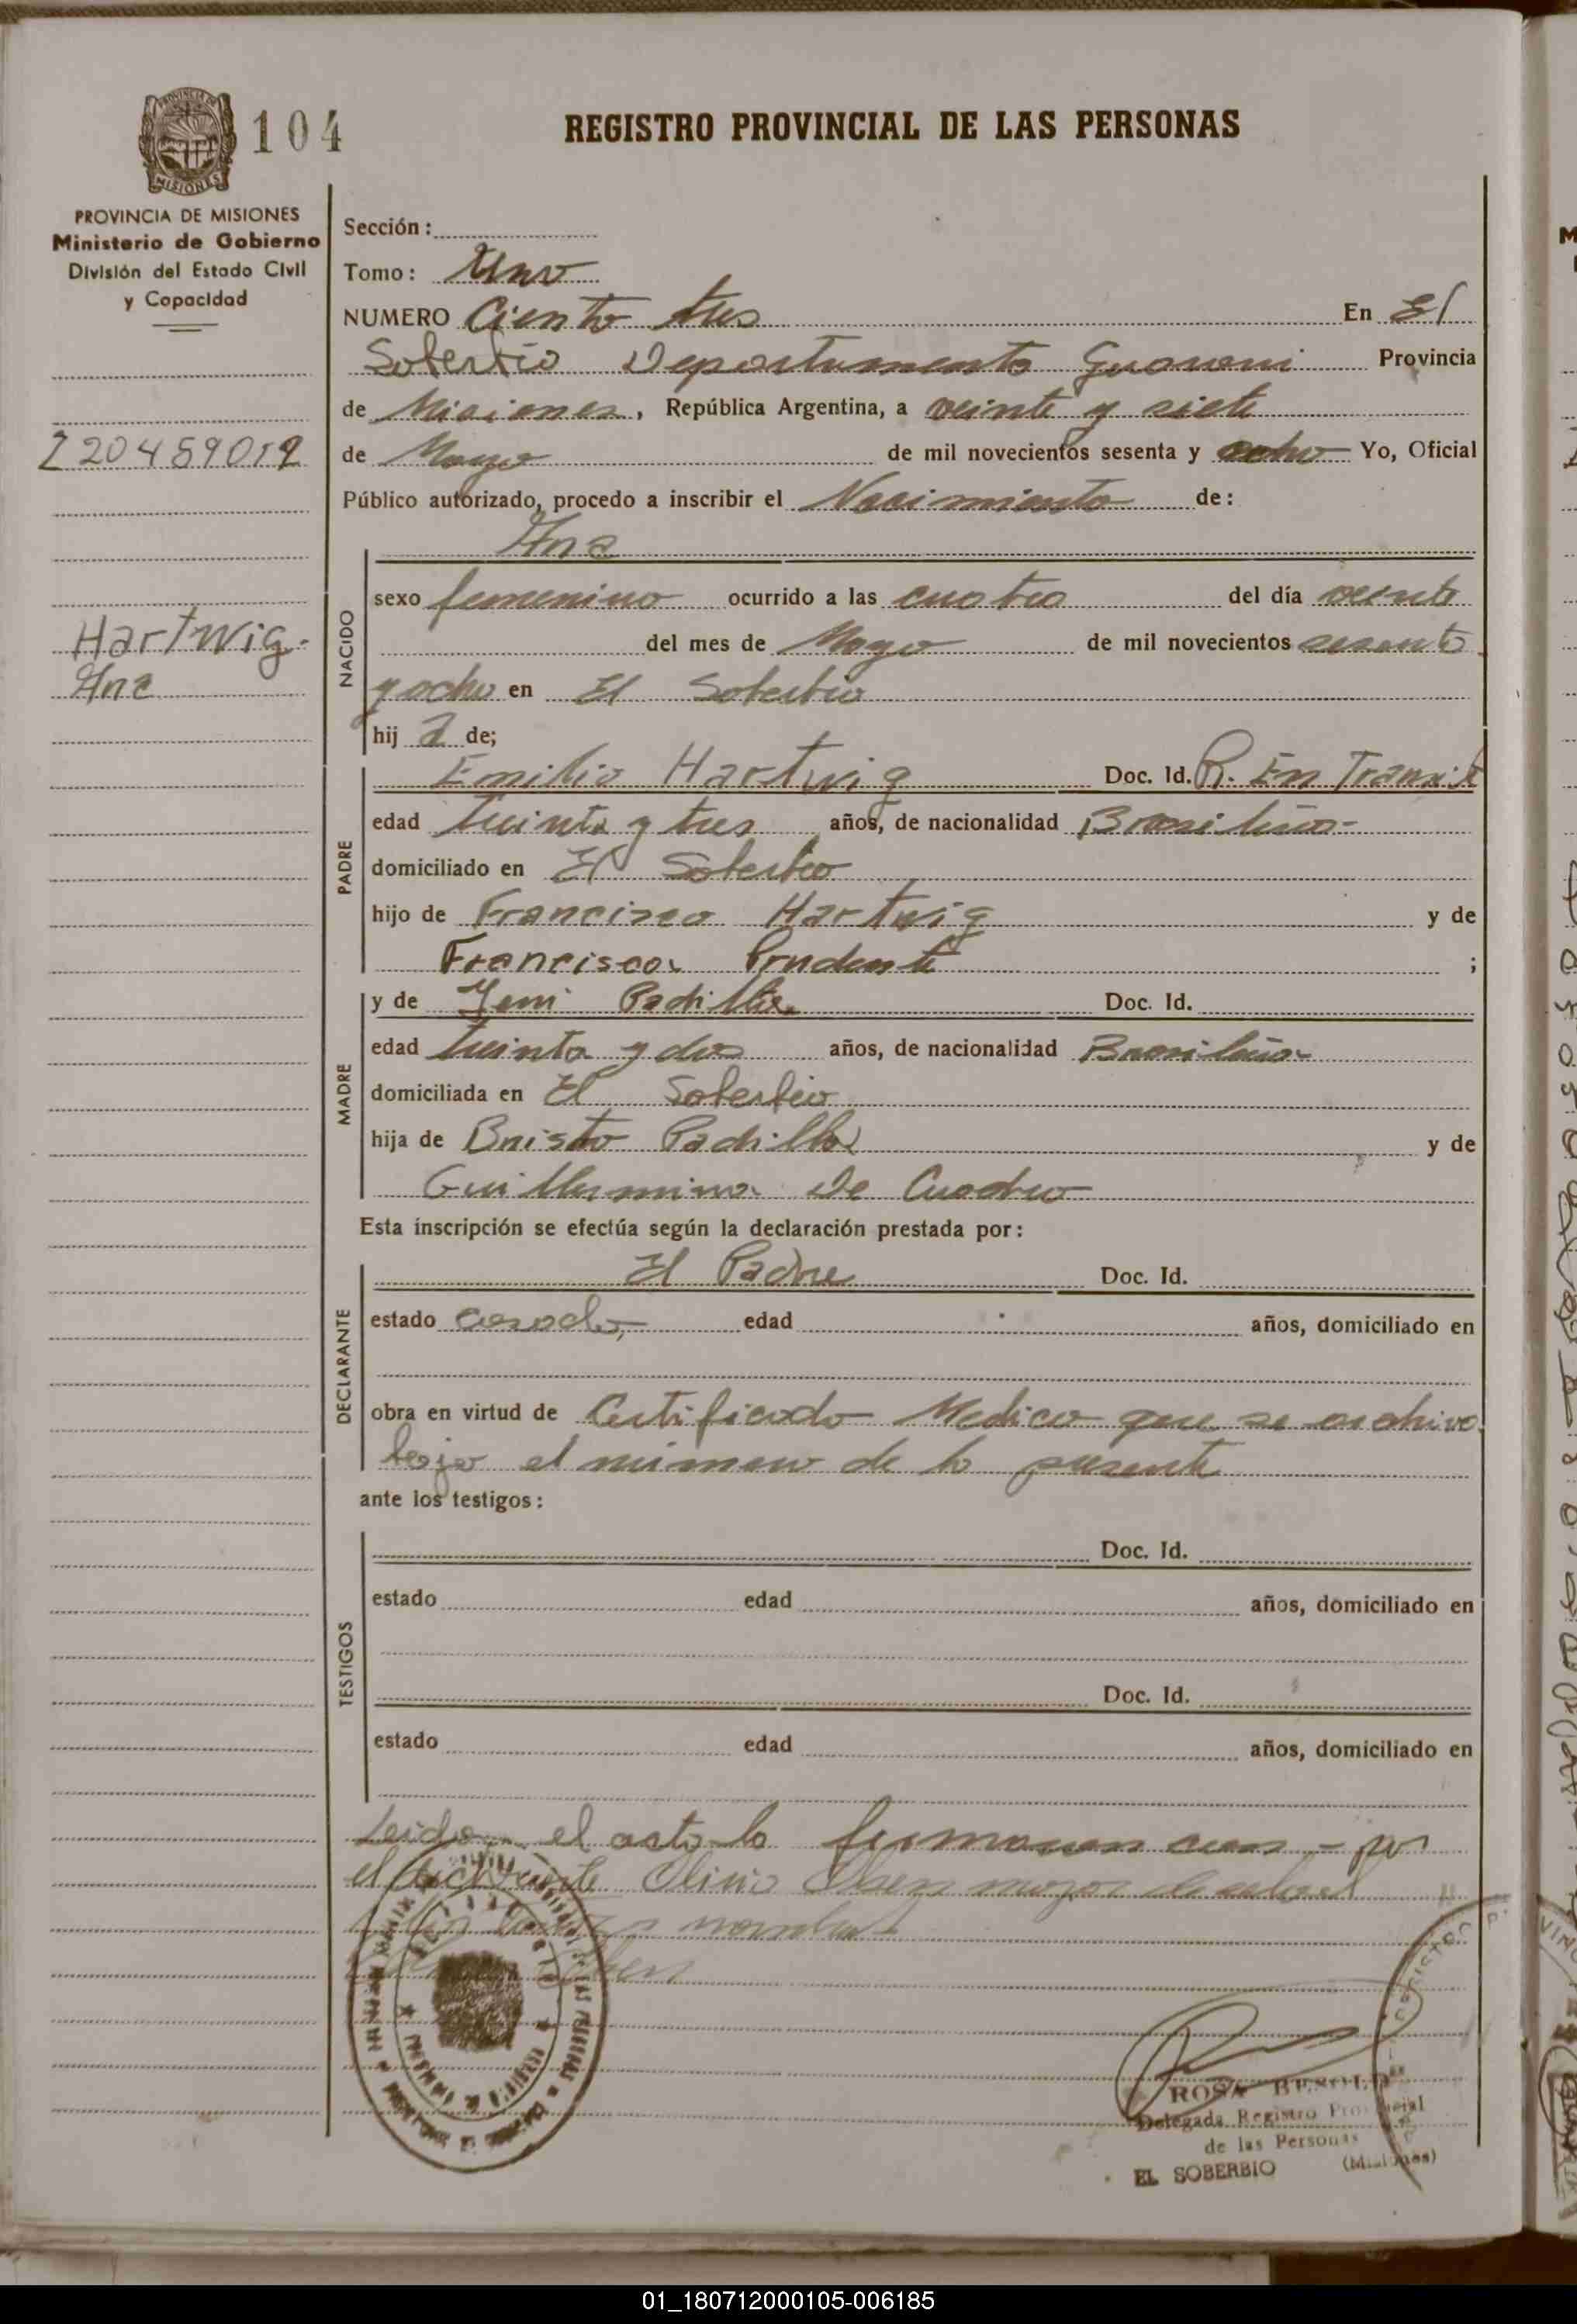 104
REGISTRO PROVINCIAL DE LAS PERSONAS
PROVINCIA DE MISIONES
Ministerio de Gobierno
División del Estado Civil
y Capacidad
Sección:
Tomo: Uno
NUMERO Ciento tres En El
Soberbio Departamento Guarani Provincia
de Misiones, República Argentina, a veinte y siete
de Mayo de mil novecientos sesenta y ocho Yo, Oficial
Público autorizado, procedo a inscribir el Nacimiento de:
Hartwig.
Ana
NACIDO
Ana
sexo femenino ocurrido a las cuatro del día veinte
del mes de Mayo de mil novecientos sesenta
y ocho en El Soberbio
hij a de;
PADRE
Emilio Hartwig Doc. Id. R. En Transit
edad treinta y tres años, de nacionalidad Brasileña
domiciliado en El Soberbio
hijo de Francisco Hartwig y de
Francisca Prudente ;
MADRE
y de Jeni Padilha Doc. Id.
edad treinta y dos años, de nacionalidad Brasileña
domiciliada en El Soberbio
hija de Padilha y de
Guillermina De Cuadro
Esta inscripción se efectúa según la declaración prestada por:
DECLARANTE
El Padre Doc. Id.
estado casado, edad años, domiciliado en
obra en virtud de Certificado Medico que se archiva
bajo el número de la presente
ante los testigos:
TESTIGOS
Doc. Id.
estado edad años, domiciliado en
Doc. Id.
estado edad años, domiciliado en
Leida el acta la - por
el Olinio Olsen mayor de edad
ROSA
Delegada Registro Provincial
de las Personas
EL SOBERBIO (Misiones)
01_180712000105-006185